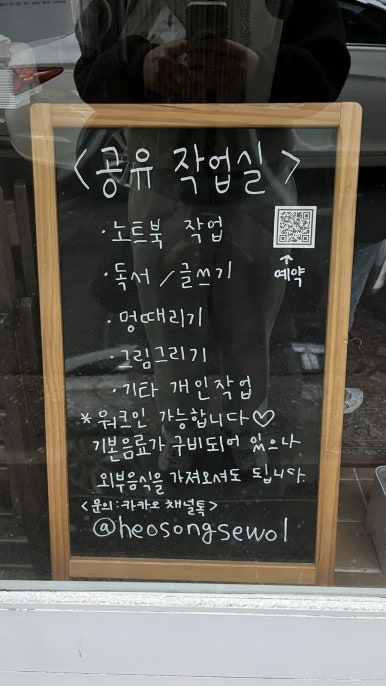 <공유 작업실>
·노트북 작업
·독서/글쓰기
↑
예약
·멍때리기
·그림그리기
·기타 개인작업
*워크인 가능합니다♡
기본음료가 구비되어 있으나
외부음식을 가져오셔도 됩니다.
<문의:카카오 채널톡>
@heosongsewol